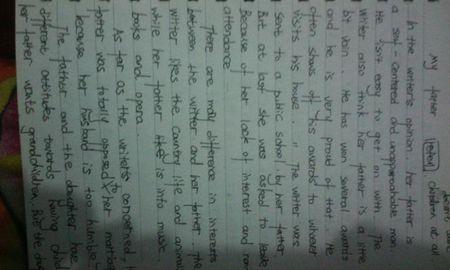 my father
children at all.
In the writer's opinion, her father is
a self-centered and unapproachable man.
He isn't easy to get on with. The
writer also think her father is a little
bit vain. He has won several awards
and he is very proud of that. He
often shows off his awards to whoever
visits his house. The writer was
sent to a public school by her father
But at last she was asked to leave
Because of her lack of interest and
attendance.
There are many difference in interests
between the writer and her father. The
writer likes the country life and animals
while her father is into music,
books and opera.
As far as the writer's concerned,
father was totally opposed to her
because her husband is too humble.
The father and the daughter have
different attitudes towards having
her father wants grandchildren, But the